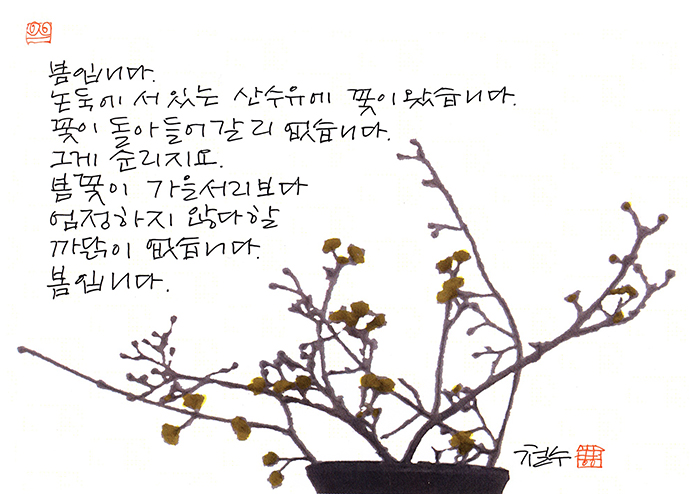 봄입니다.
논둑에 서있는 산수유에 꽃이 왔습니다.
꽃이 돌아들어갈 리 없습니다.
그게 순리지요.
봄꽃이 가을서리보다
엄정하지 않다할
까닭이 없습니다.
봄입니다.
철수